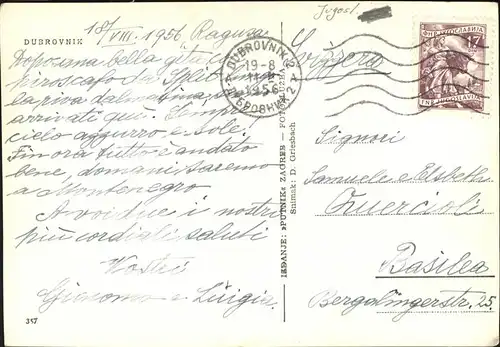 Jugosl.
DUBROVNIK
18/VIII. 1956 Ragusa
Dopo una bella gita in
piroscafo da Split
la riva dalmatina,
arrivati qui. Sempre
cielo azzurro e sole.
Fin ora tutto è andato
bene, domani saremo
a Montenegro
A voi due i nostri
più cordiali saluti
Vostri
Giacomo e Luigia
357
IZDANJE: »PUTNIK« ZAGREB — FOTO-SLUŽBA
Snimak: D. Griesbach
DUBROVNIK 2
19-8
1956
ДУБРОВНИК 2
ФНР ЈУГОСЛАВИЈА
17
FNR JUGOSLAVIJA
Svizzera
Signori
Samuele e Elsbeth
Quercioli
Basilea
Bergalingerstr. 25